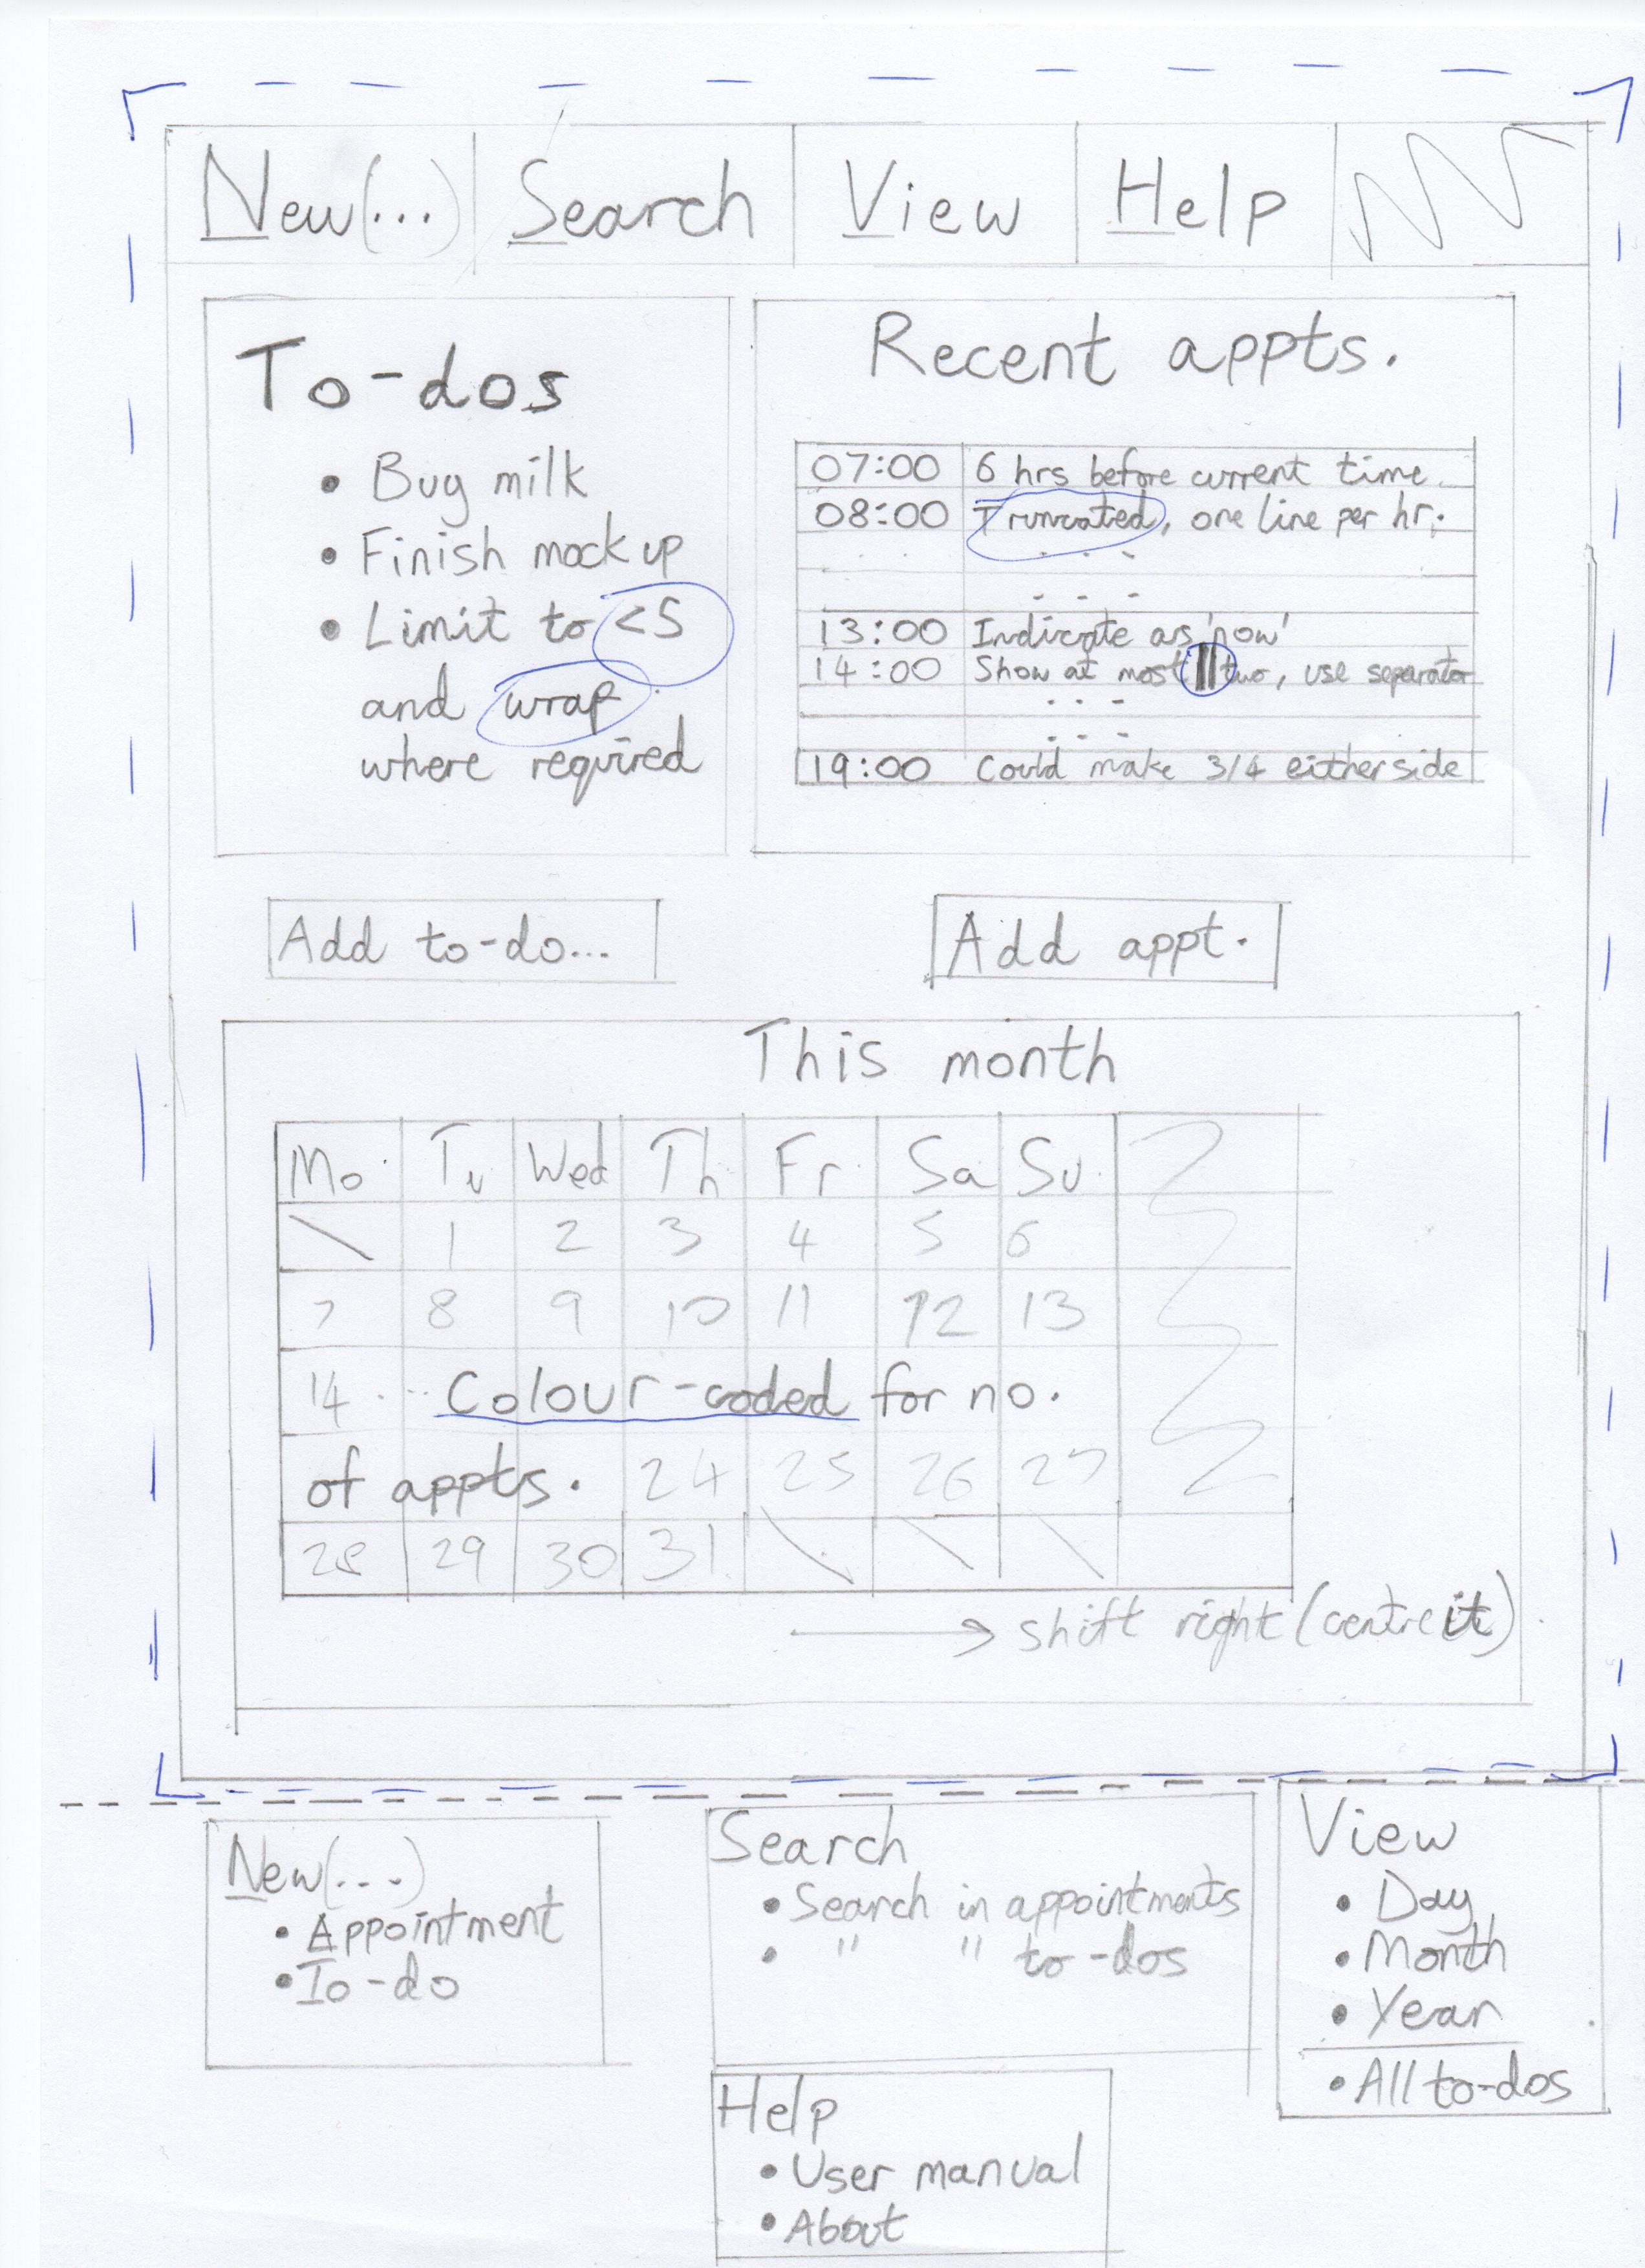 New(...) Search View Help
To-dos
• Bug milk
• Finish mock up
• Limit to <5
and wrap
where required
Recent appts.
07:00 6 hrs before current time.
08:00 Truncated, one line per hr.
. . .
. . .
13:00 Indicate as 'now'
14:00 Show at most || two, use separator
. . .
. . .
19:00 Could make 3/4 either side
Add to-do...
Add appt.
This month
Mo Tu Wed Th Fr Sa Su
1 2 3 4 5 6
7 8 9 10 11 12 13
14 ... Colour-coded for no.
of appts. 24 25 26 27
28 29 30 31
→ shift right (centre it)
New(...)
• Appointment
• To-do
Search
• Search in appointments
• " " to-dos
View
• Day
• Month
• Year
• All to-dos
Help
• User manual
• About